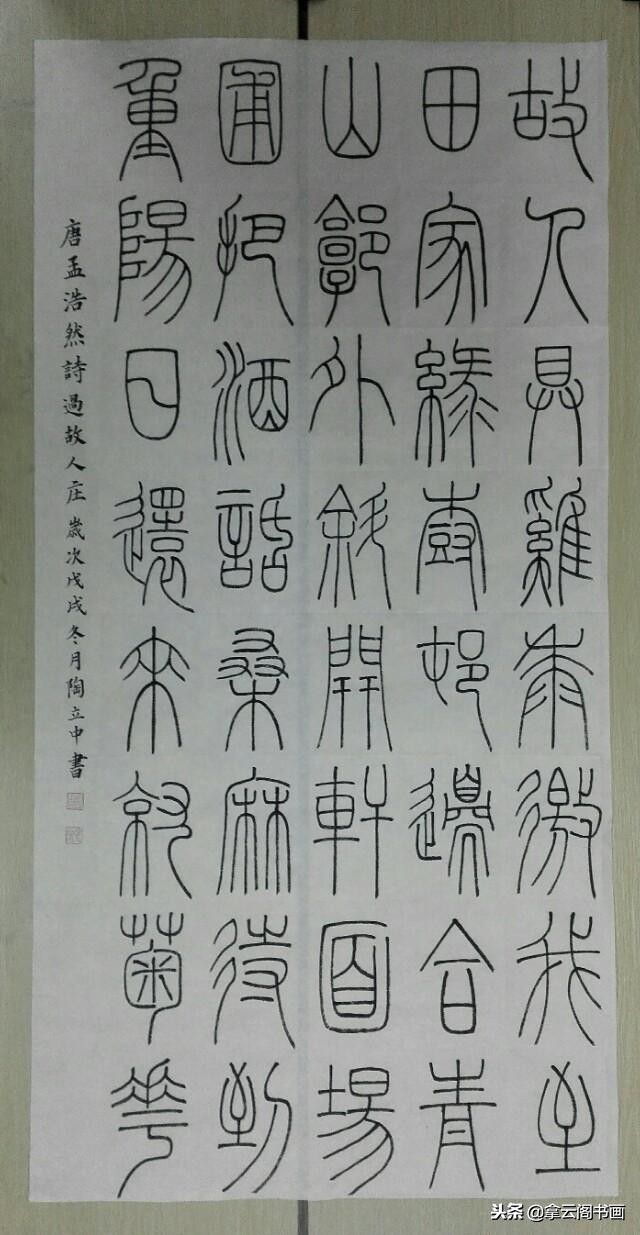 故人具雞黍徼我至
田家緑樹邨邊合青
山郭外斜開軒面場
圃把酒話桑麻待到
重陽日還來就菊花
唐孟浩然詩過故人庄 歲次戊戌冬月陶立中書
头条 @拿云阁书画